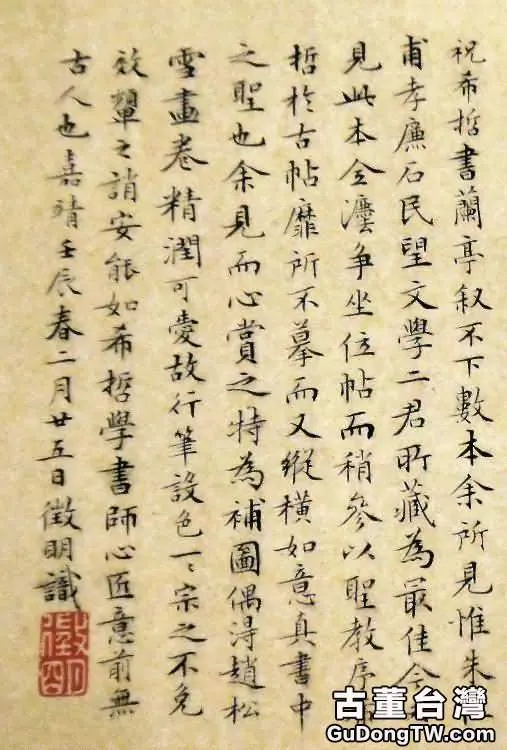 祝希哲書蘭亭叙不下數本余所見惟朱
甫孝廉石民望文學二君所藏為最佳今
見此本全灋争坐位帖而稍參以聖教序
哲於古帖靡所不摹而又縱横如意真書中
之聖也余見而心賞之特為補圖偶淂趙松
雪畫卷精潤可愛故行筆設色一〻宗之不免
效顰之誚安能如希哲學書師心匠意前無
古人也嘉靖壬辰春二月廿五日徵明識
古董台灣
GuDongTW.com